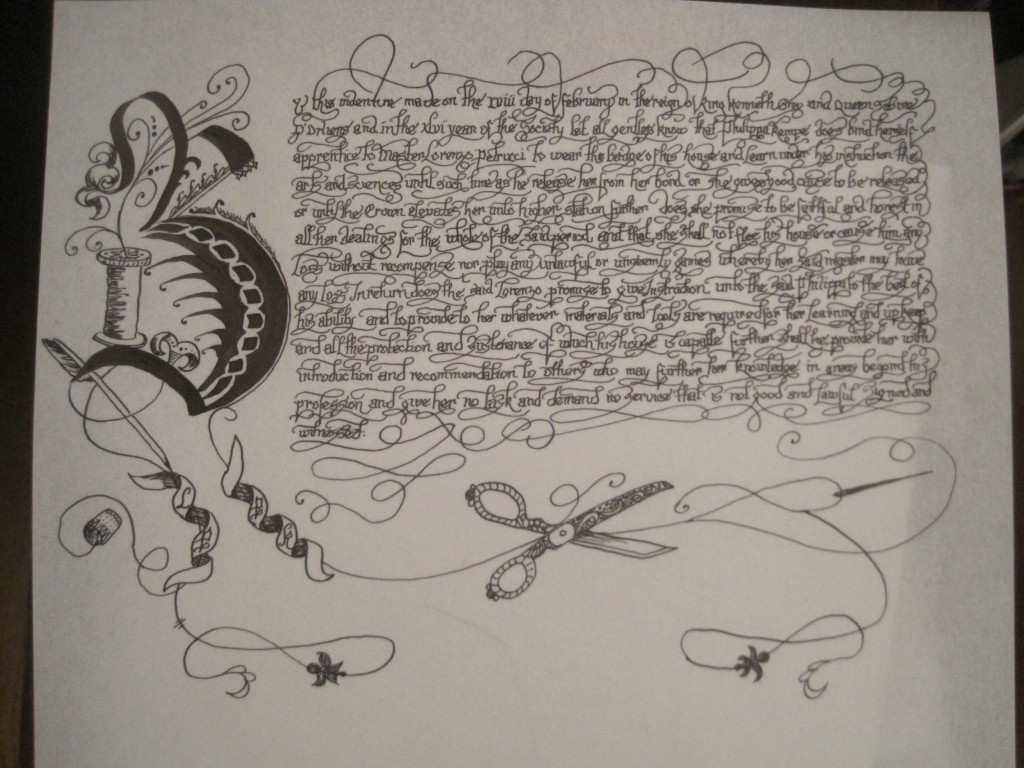 this indenture made on the xviii day of february in the reign of King Kenneth Grey and Queen
D'Orleans and in the xlvi year of the Society Let all gentles know that Philippa Kempe does bind herself
apprentice to Master Lorenzo Petrucci to wear the badge of his house and learn under his instruction the
arts and sciences until such time as he release her from her bond or she gives good cause to be released
or until the Crown elevates her unto higher station further does she promise to be faithful and honest in
all her dealings for the whole of the said period, and that she shall not flee his house or cause him any
Loss without recompense nor play any unlawful or unseemly games whereby her said master may have
any Loss In return does the said Lorenzo promise to give instruction unto the said Philippa to the best of
his ability and to provide to her whatever materials and tools are required for her learning and upkeep
and all the protection and sustenance of which his house is capable further shall he provide her with
introduction and recommendation to others who may further her knowledge in areas beyond his
profession and give her no task and demand no service that is not good and lawful Signed and
witnessed.